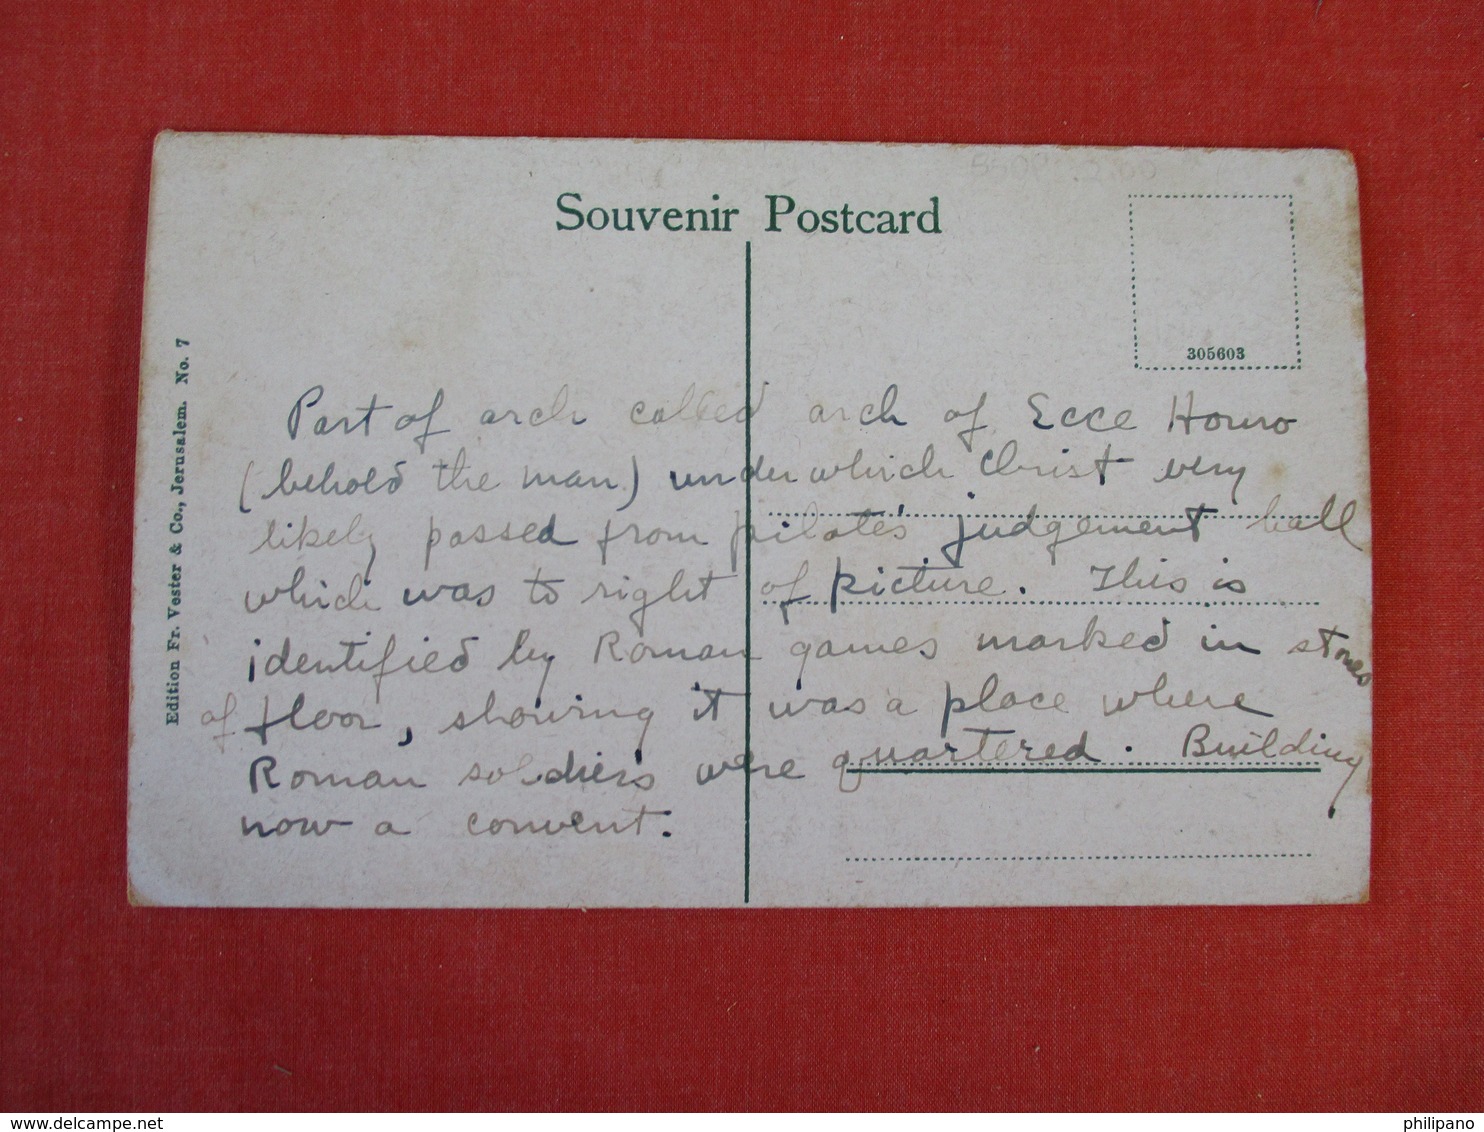 Souvenir Postcard
305603
Edition Fr. Vester & Co., Jerusalem. No. 7
Part of arch called arch of Ecce Homo
(behold the man) under which Christ very
likely passed from pilate's judgement hall
which was to right of picture. This is
identified by Roman games marked in stones
of floor, showing it was a place where
Roman soldiers were quartered. Building
now a convent.
www.delcampe.net
philipano